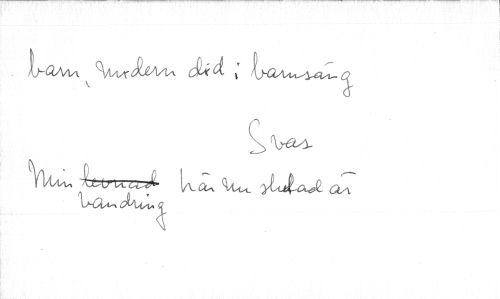 barn, modern död i barnsäng
Svar
Min levnad här nu slutad är
vandring